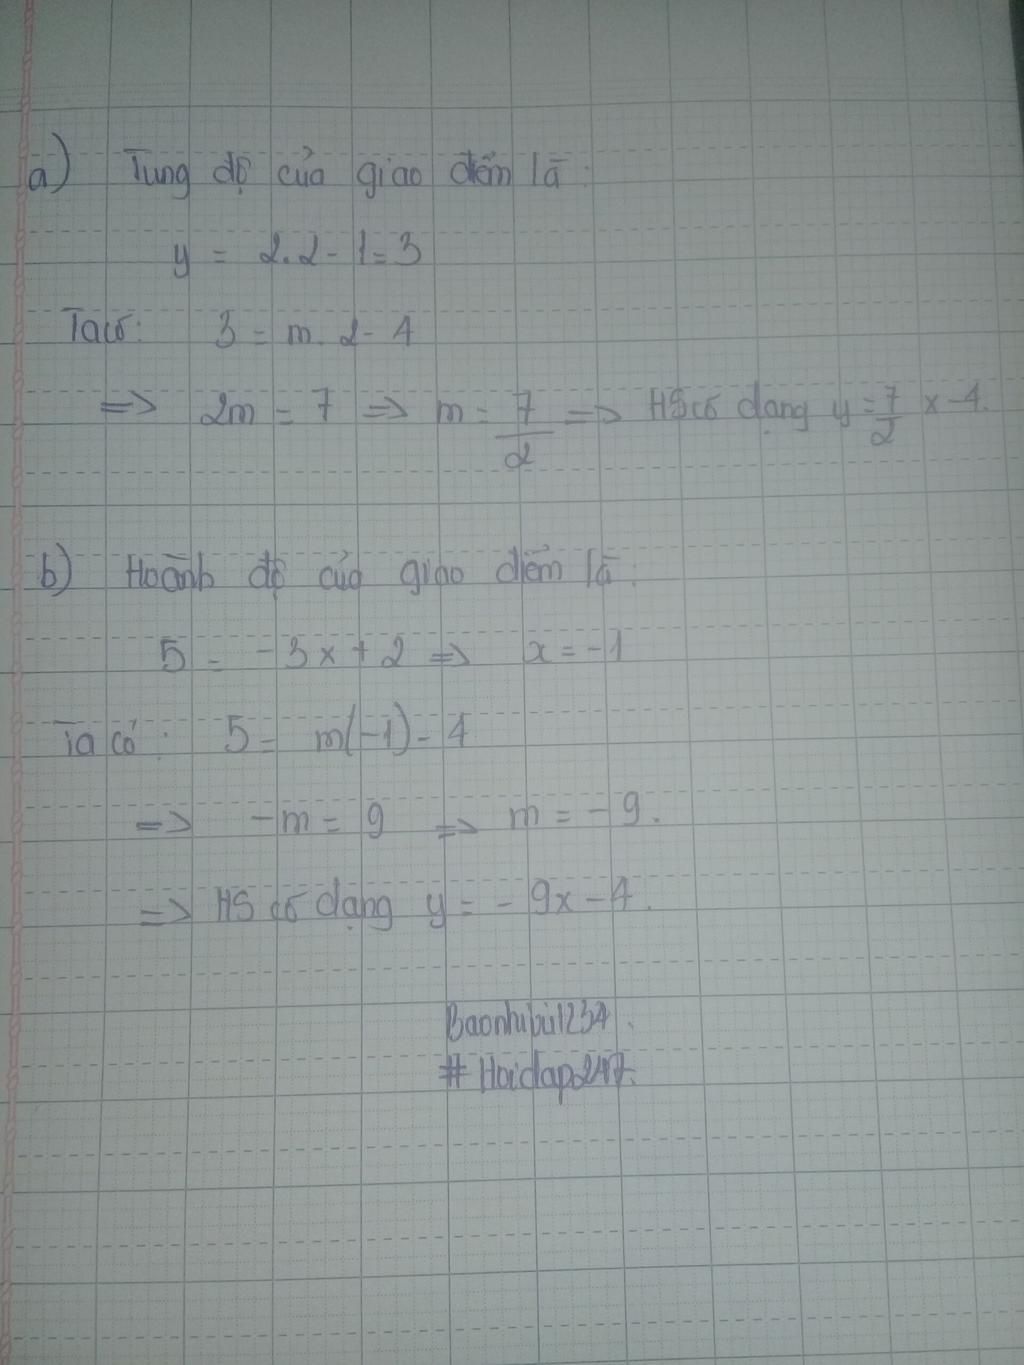 a) Tung độ của giao điểm là:
y = 2.2 - 1 = 3
Ta có: 3 = m. 2 - 4
=> 2m = 7 => m = 7/2 => HS có dạng y = 7/2 x - 4.
b) Hoành độ của giao điểm là:
5 = -3x + 2 => x = -1
Ta có: 5 = m(-1) - 4
=> -m = 9 => m = -9.
=> HS có dạng y = -9x - 4.
Baonhubui1234.
# Hoidap247.